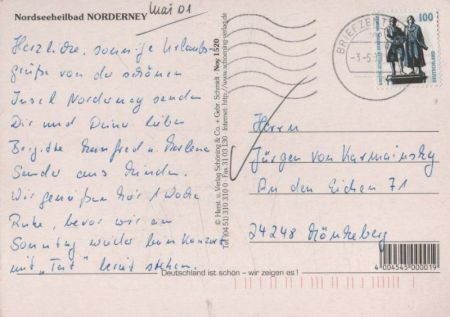 Nordseeheilbad NORDERNEY
Mai 01
Herzliche, sonnige Urlaubs-
grüße von der schönen
Insel Norderney senden
Dir und Deiner lieben
Brigitte Manfred und Marlene
Sander aus Minden.
Wir genießen hier 1 Woche
Ruhe, bevor wir am
Sonntag wieder beim Konzert
mit „Tut“ bereit stehen.
© Herst. u. Verlag Schöning & Co. + Gebr. Schmidt Ney 1520
Tel. (04 51) 310 310 0 Fax 31 03 130 Internet: http://www.schoening-verlag.de
BRIEFZENTR
100
DEUTSCHLAND
Herrn
Jürgen von
An den Eichen 71
24248 Mönkeberg
4 004545 000019
Deutschland ist schön – wir zeigen es!